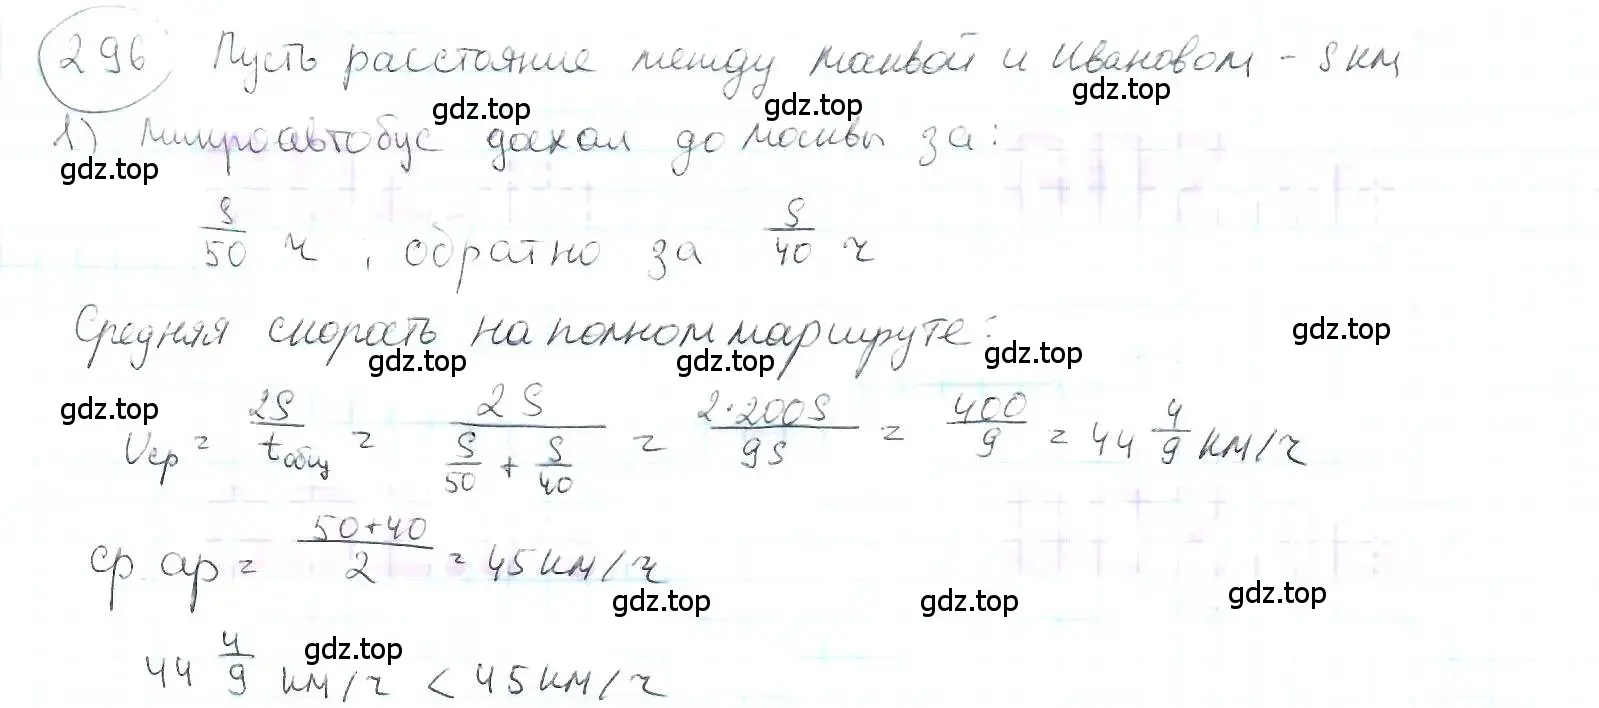 296 Пусть расстояние между Москвой и Ивановом - S км
gdz.top gdz.top gdz.top
1) Микроавтобус доехал до Москвы за:
gdz.top
S/50 ч, обратно за S/40 ч
Средняя скорость на полном маршруте:
gdz.top gdz.top gdz.top gdz.top
gdz.top
Vср = 2S/tобщ = 2S/(S/50 + S/40) = 2·200S/9S = 400/9 = 44 4/9 км/ч
ср. ар = (50+40)/2 = 45 км/ч
gdz.top gdz.top gdz.top
gdz.top
44 4/9 км/ч < 45 км/ч